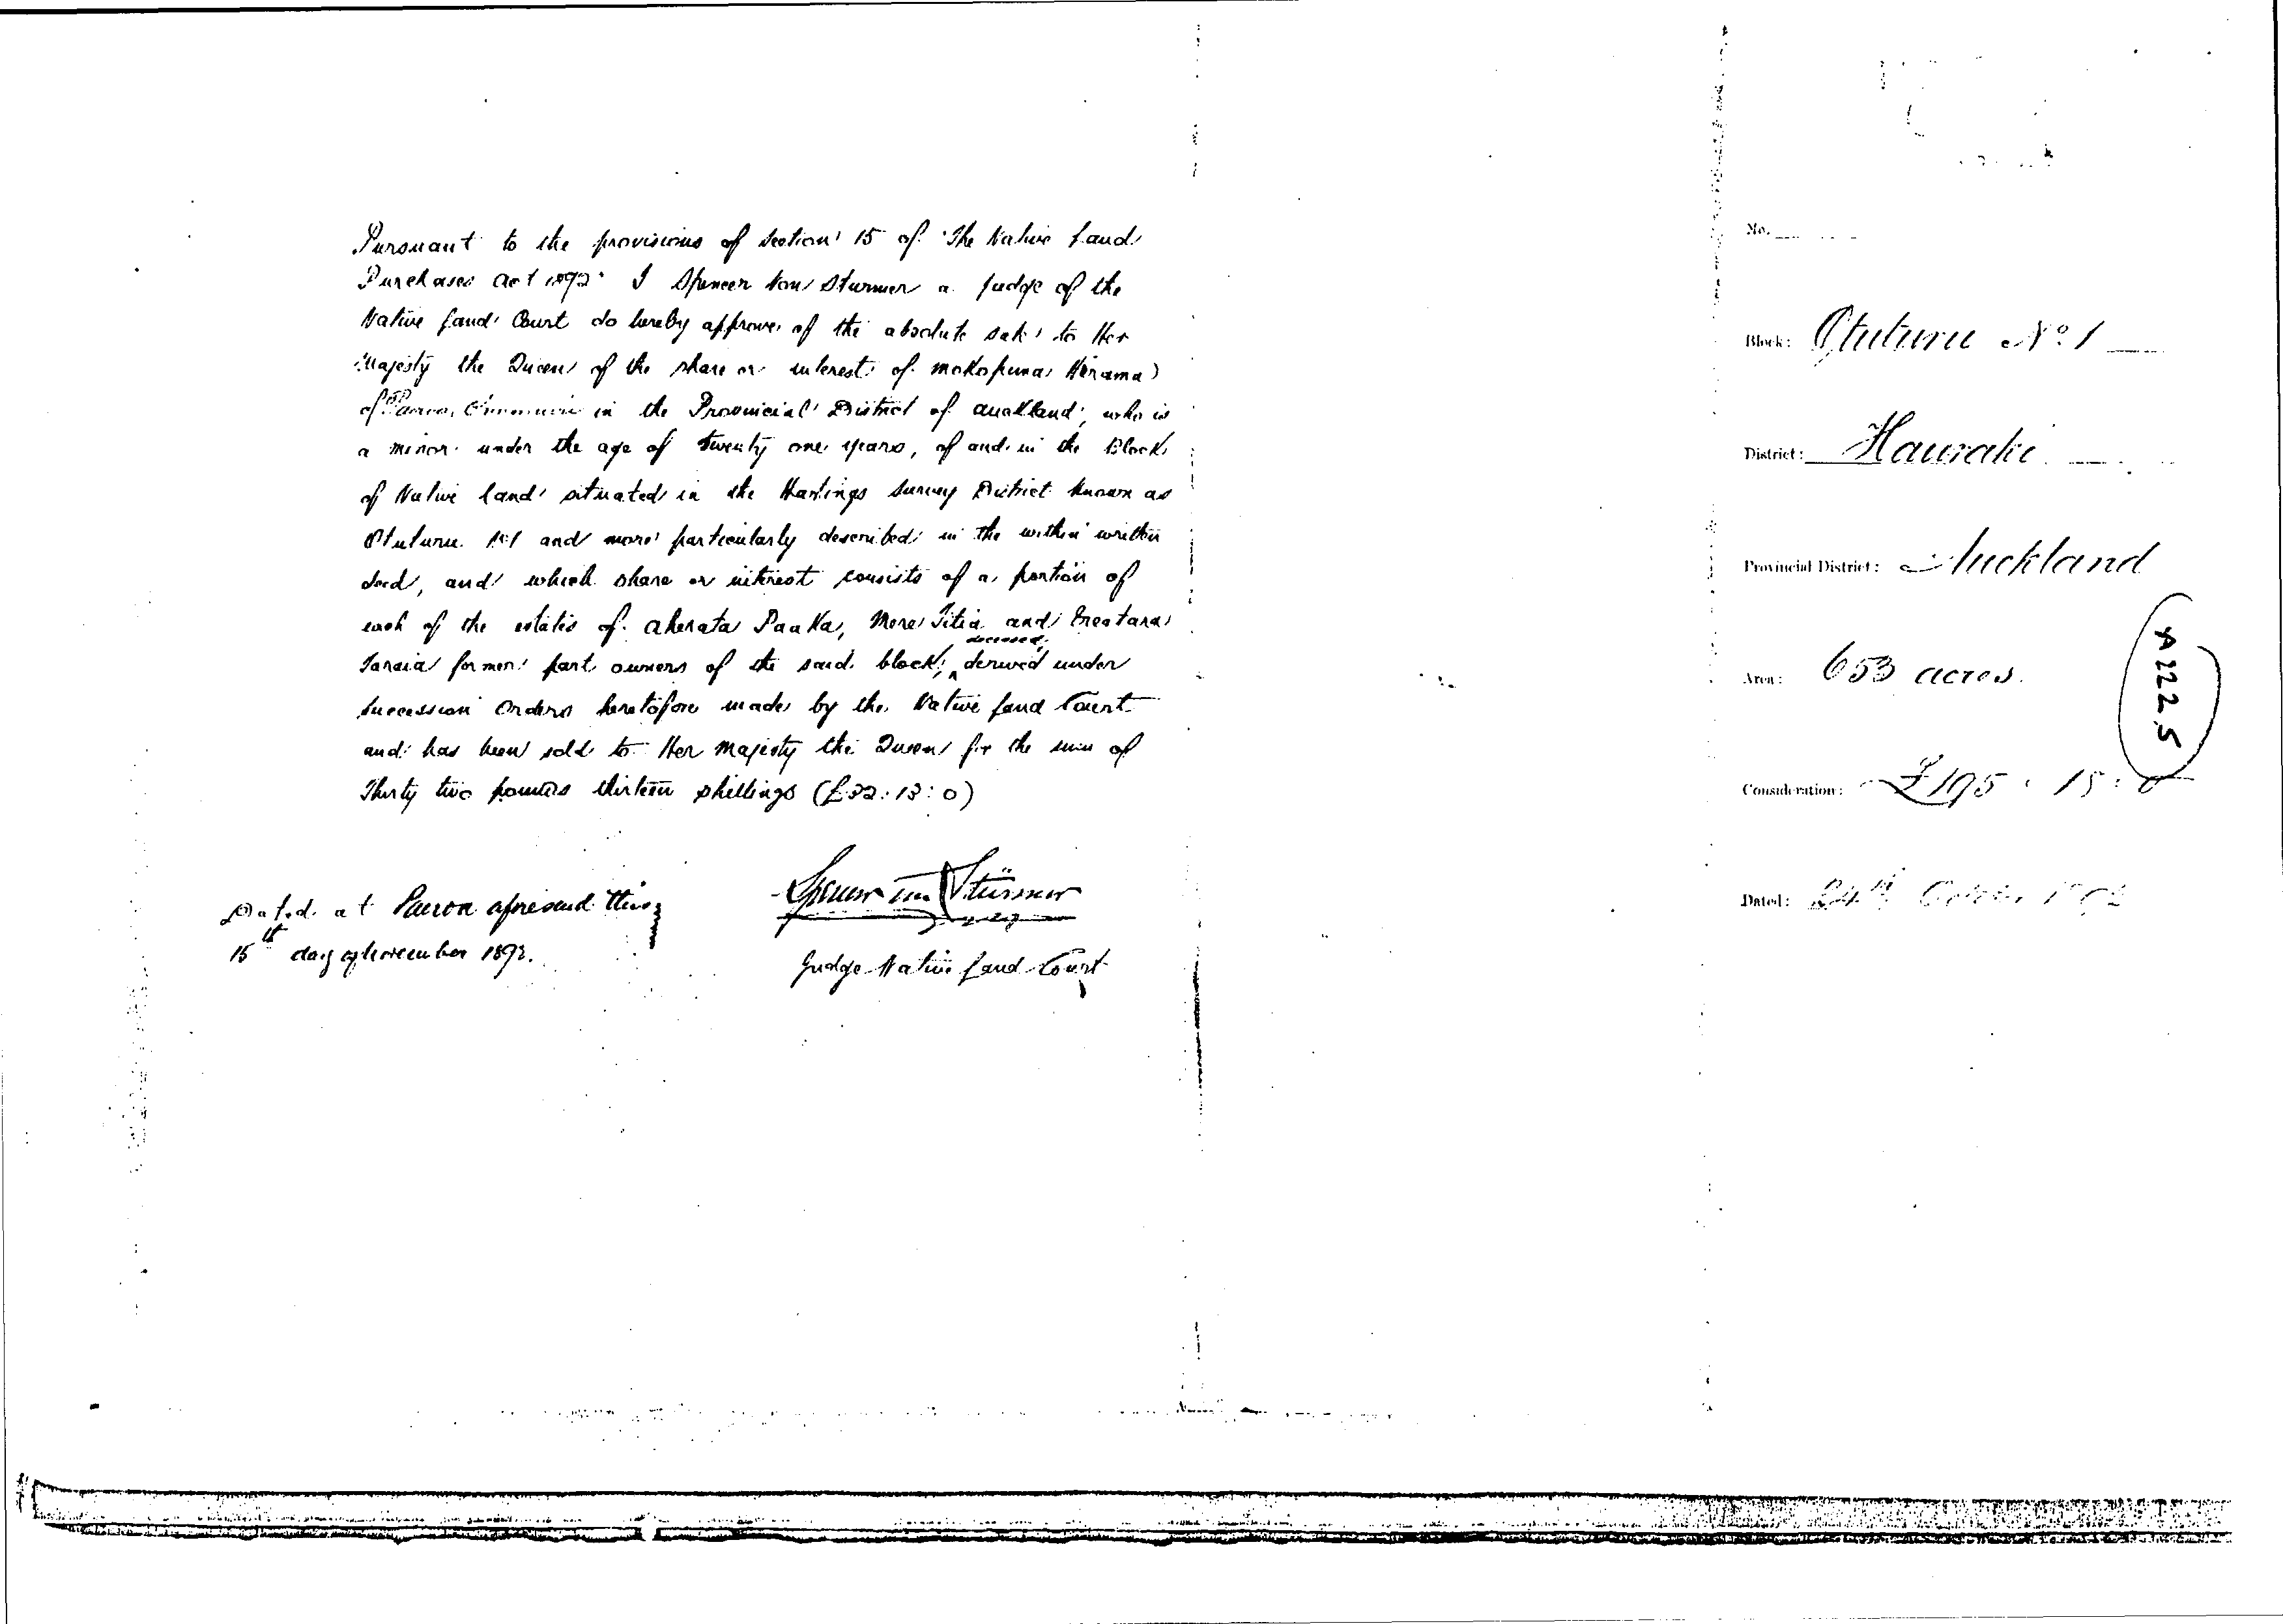 Pursuant to the provisions of Section 15 of "The Native Land
Purchases Act 1892" I Spencer Von Sturmer a Judge of the
Native Land Court do hereby approve of the absolute sale to Her
Majesty the Queen of the share or interest of Mokopuna Hirama
of Paeroa, in the Provincial District of Auckland, who is
a minor under the age of twenty one years, of and in the Block
of Native land situated in the Hastings Survey District known as
Otuturu No 1 and more particularly described in the within written
deed, and which share or interest consists of a portion of
each of the estates of Akerata Paaka, Mere Titia and Ereatara
deceased,
Taraia former part owners of the said block, derived under
Succession Orders heretofore made by the Native Land Court
and has been sold to Her Majesty the Queen for the sum of
Thirty two pounds thirteen shillings (£32:13:0)
Dated at Paeroa aforesaid this
15th day of November 1892.
Spencer von Stürmer
Judge Native Land Court
No.
Block: Otuturu No 1
District: Hauraki
Provincial District: Auckland
Area: 653 acres.
Consideration: £195:18:0
Dated: 24th 1892